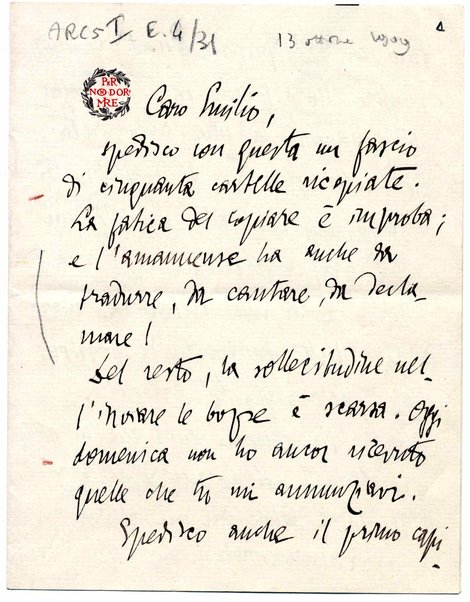 ARC5 I E. 4/31 13 ottobre 1909
PER
NON DOR
MIRE
Caro Emilio,
spedisco con questa un fascio
di cinquanta cartelle ricopiate.
La fatica del copiare è improba;
e l'amanuense ha anche da
tradurre, da cantare, da decla-
mare!
Del resto, la sollecitudine nel-
l'inviare le bozze è scarsa. Oggi
domenica non ho ancor ricevuto
quelle che tu mi annunziavi.
Spedisco anche il primo capi-